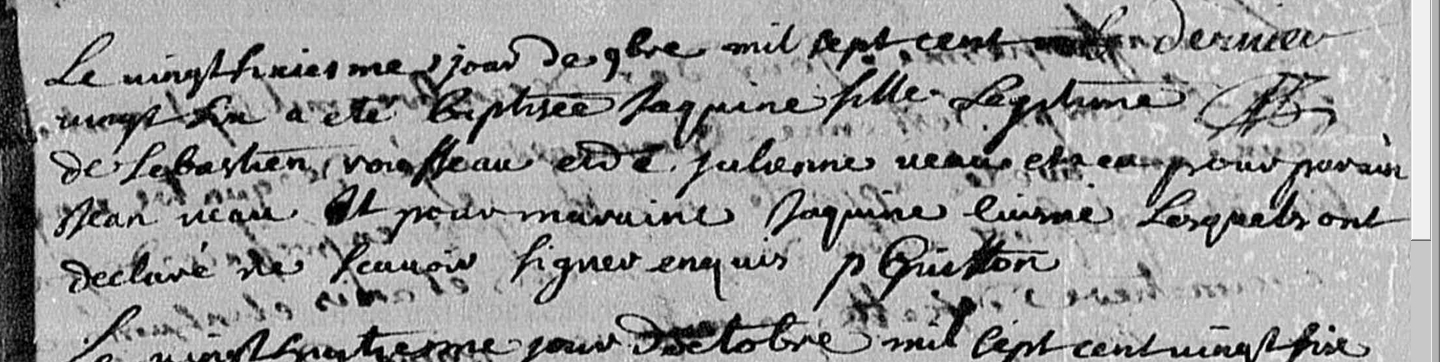 Le vingt sixiesme jour de 9bre mil sept cent dernier
vingt six a ete baptisee Jaquine fille Legitime
de Sebastien rousseau et de Julienne veau et a eu pour parain
Jean veau Et pour maraine Jaquine Lesquels ont
declaré ne scauoir signer enquis p Guitton
Le jour doctobre mil sept cent vingt six